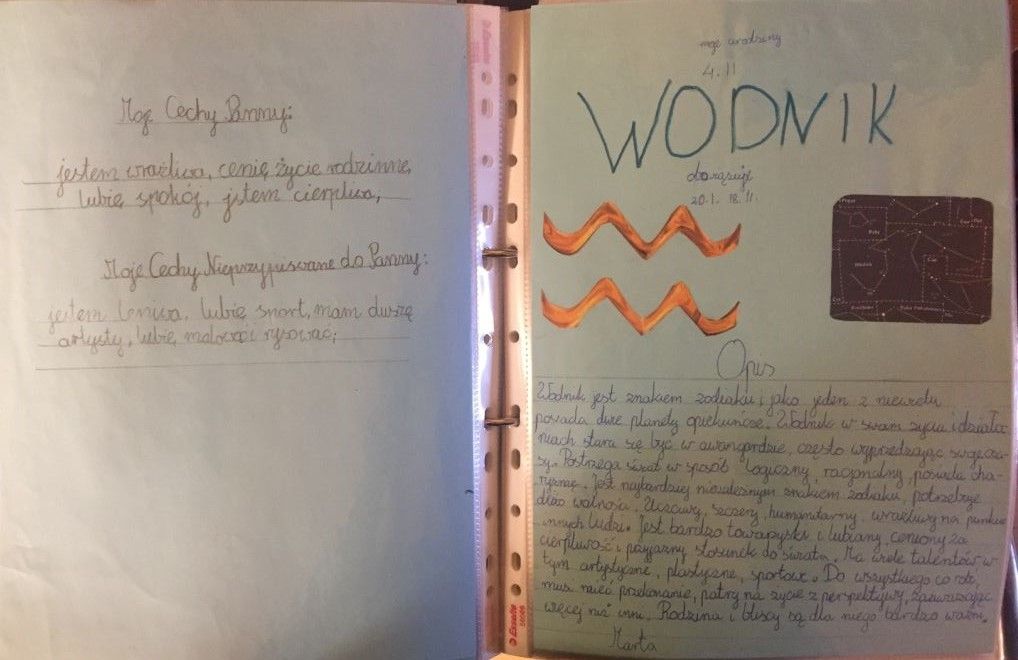 Moje Cechy Panny:
jestem wrażliwa, cenię życie rodzinne,
lubię spokój, jstem cierpliwa,
Moje Cechy Nieprzypisowane do Panny:
jestem leniwa, lubię sport, mam duszę
artysty, lubię malować i rysować;
Esselte
Esselte
56066
moje urodziny
4.II
WODNIK
20.I. 18.II.
Opis
Wodnik jest znakiem zodiaku i jako jeden z niewielu
posiada dwie planety opiekuńcze. Wodnik w swoim życiu i działa-
niach stara się być w awangardzie, często wyprzedzając swoje cza-
sy. Postrzega świat w sposób logiczny, racjonalny, posiada cha-
ryzmę. Jest najbardziej niezależnym znakiem zodiaku, potrzebuje
dużo wolności. Uczciwy, szczery, humanitarny, wrażliwy na punkcie
innych ludzi. Jest bardzo towarzyski i lubiany, ceniony za
cierpliwość i przyjazny stosunek do świata. Ma wiele talentów w
tym artystyczne, plastyczne, sportowe. Do wszystkiego co robi,
musi mieć przekonanie, patrzy na życie z perspektywy, zauważając
więcej niż inni. Rodzina i bliscy są dla niego bardzo ważni.
Marta